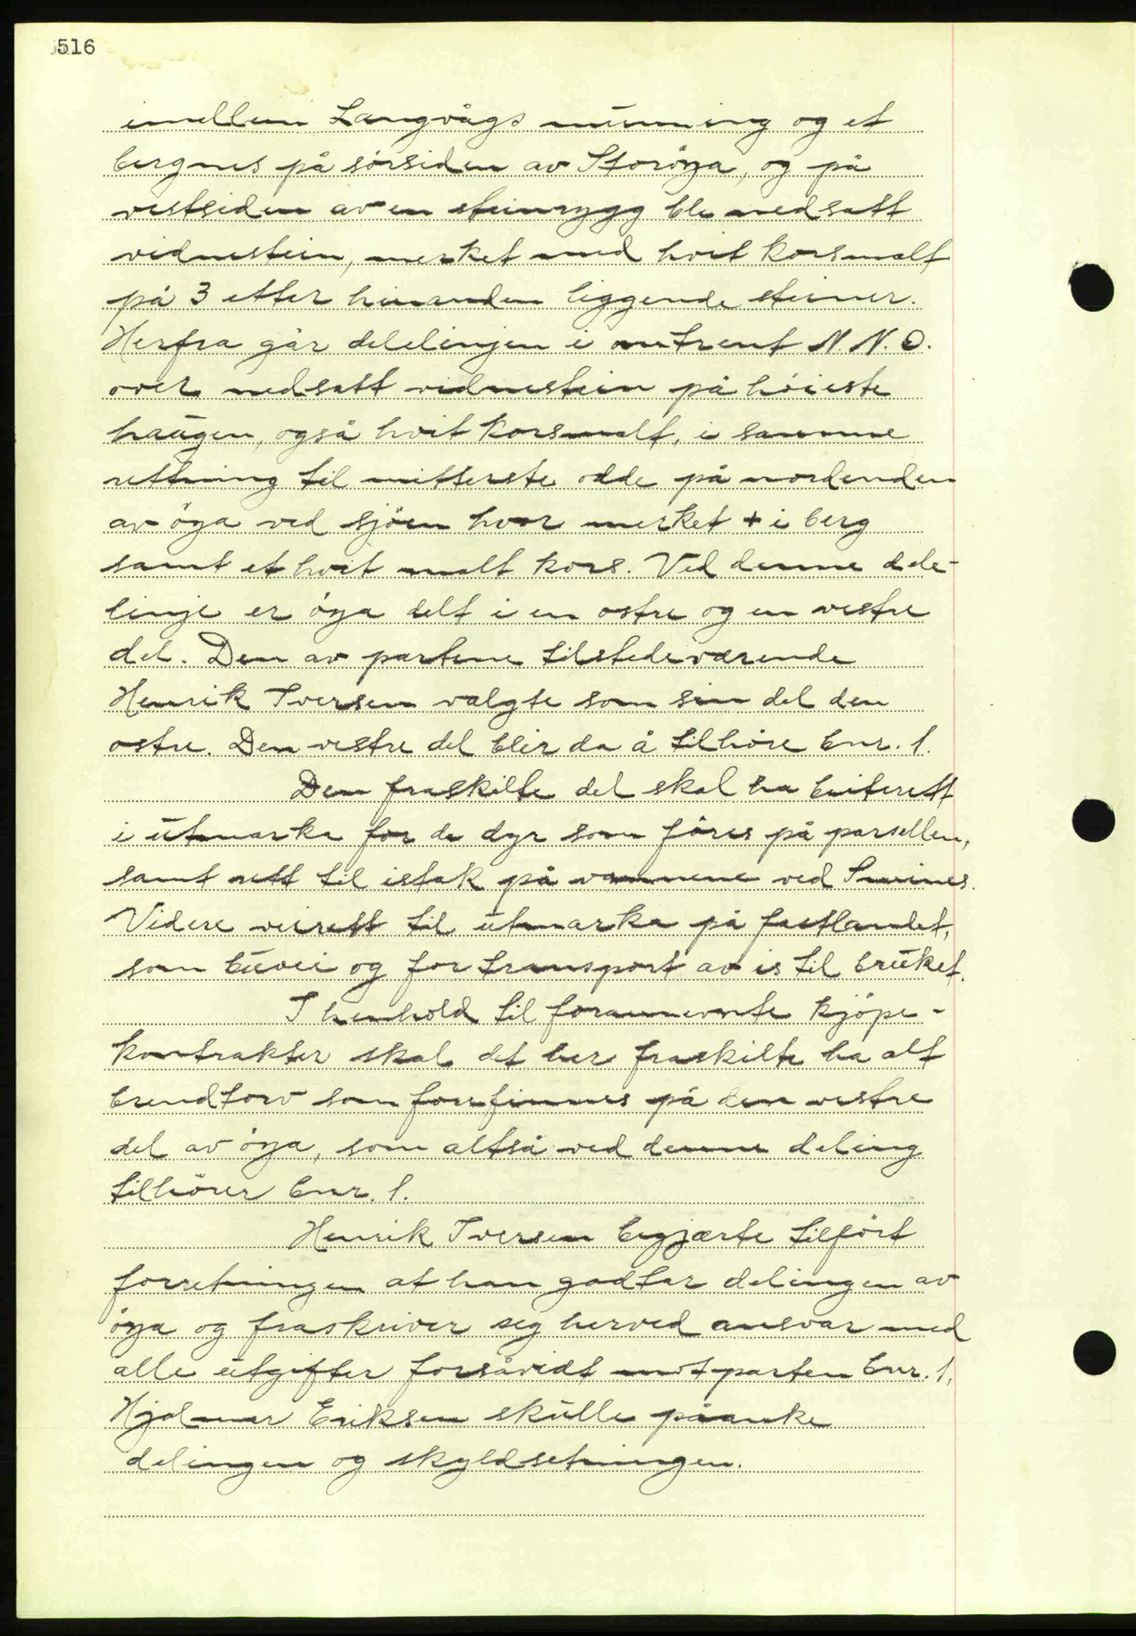 516
imellem Langvågs munning og et
bergnes på sørsiden av Storøya, og på
vestsiden av en steinrygg ble nedsatt
vidnestein, merket med hvit korsmalt
på 3 etter hinanden liggende steiner.
Herfra går delelinjen i omtrent N.N.O.
over nedsatt vidnestein på høieste
haugen, også hvit korsmalt, i samme
retning til mitterste odde på nordenden
av øya ved sjøen hvor merket + i berg
samt et hvit malt kors. Ved denne dele-
linje er øya delt i en østre og en vestre
del. Den av partene tilstedeværende
Henrik Iversen valgte som sin del den
østre. Den vestre del blir da å tilhøre bnr. 1.
Den fraskilte del skal ha beiterett
i utmarka for de dyr som fôres på parsellen,
samt rett til istak på vannene ved
Videre veirett til utmarka på fastlandet,
som buvei og for transport av is til bruket.
I henhold til forannevnte kjøpe-
kontrakter skal det her fraskilte ha alt
brendtorv som forefinnes på den vestre
del av øya, som altså ved denne deling
tilhører bnr. 1.
Henrik Iversen begjærte tilført
forretningen at han godtar delingen av
øya og fraskriver seg herved ansvar med
alle utgifter forsåvidt motparten bnr. 1,
Hjalmar Eriksen skulle påanke
delingen og skyldsetningen.